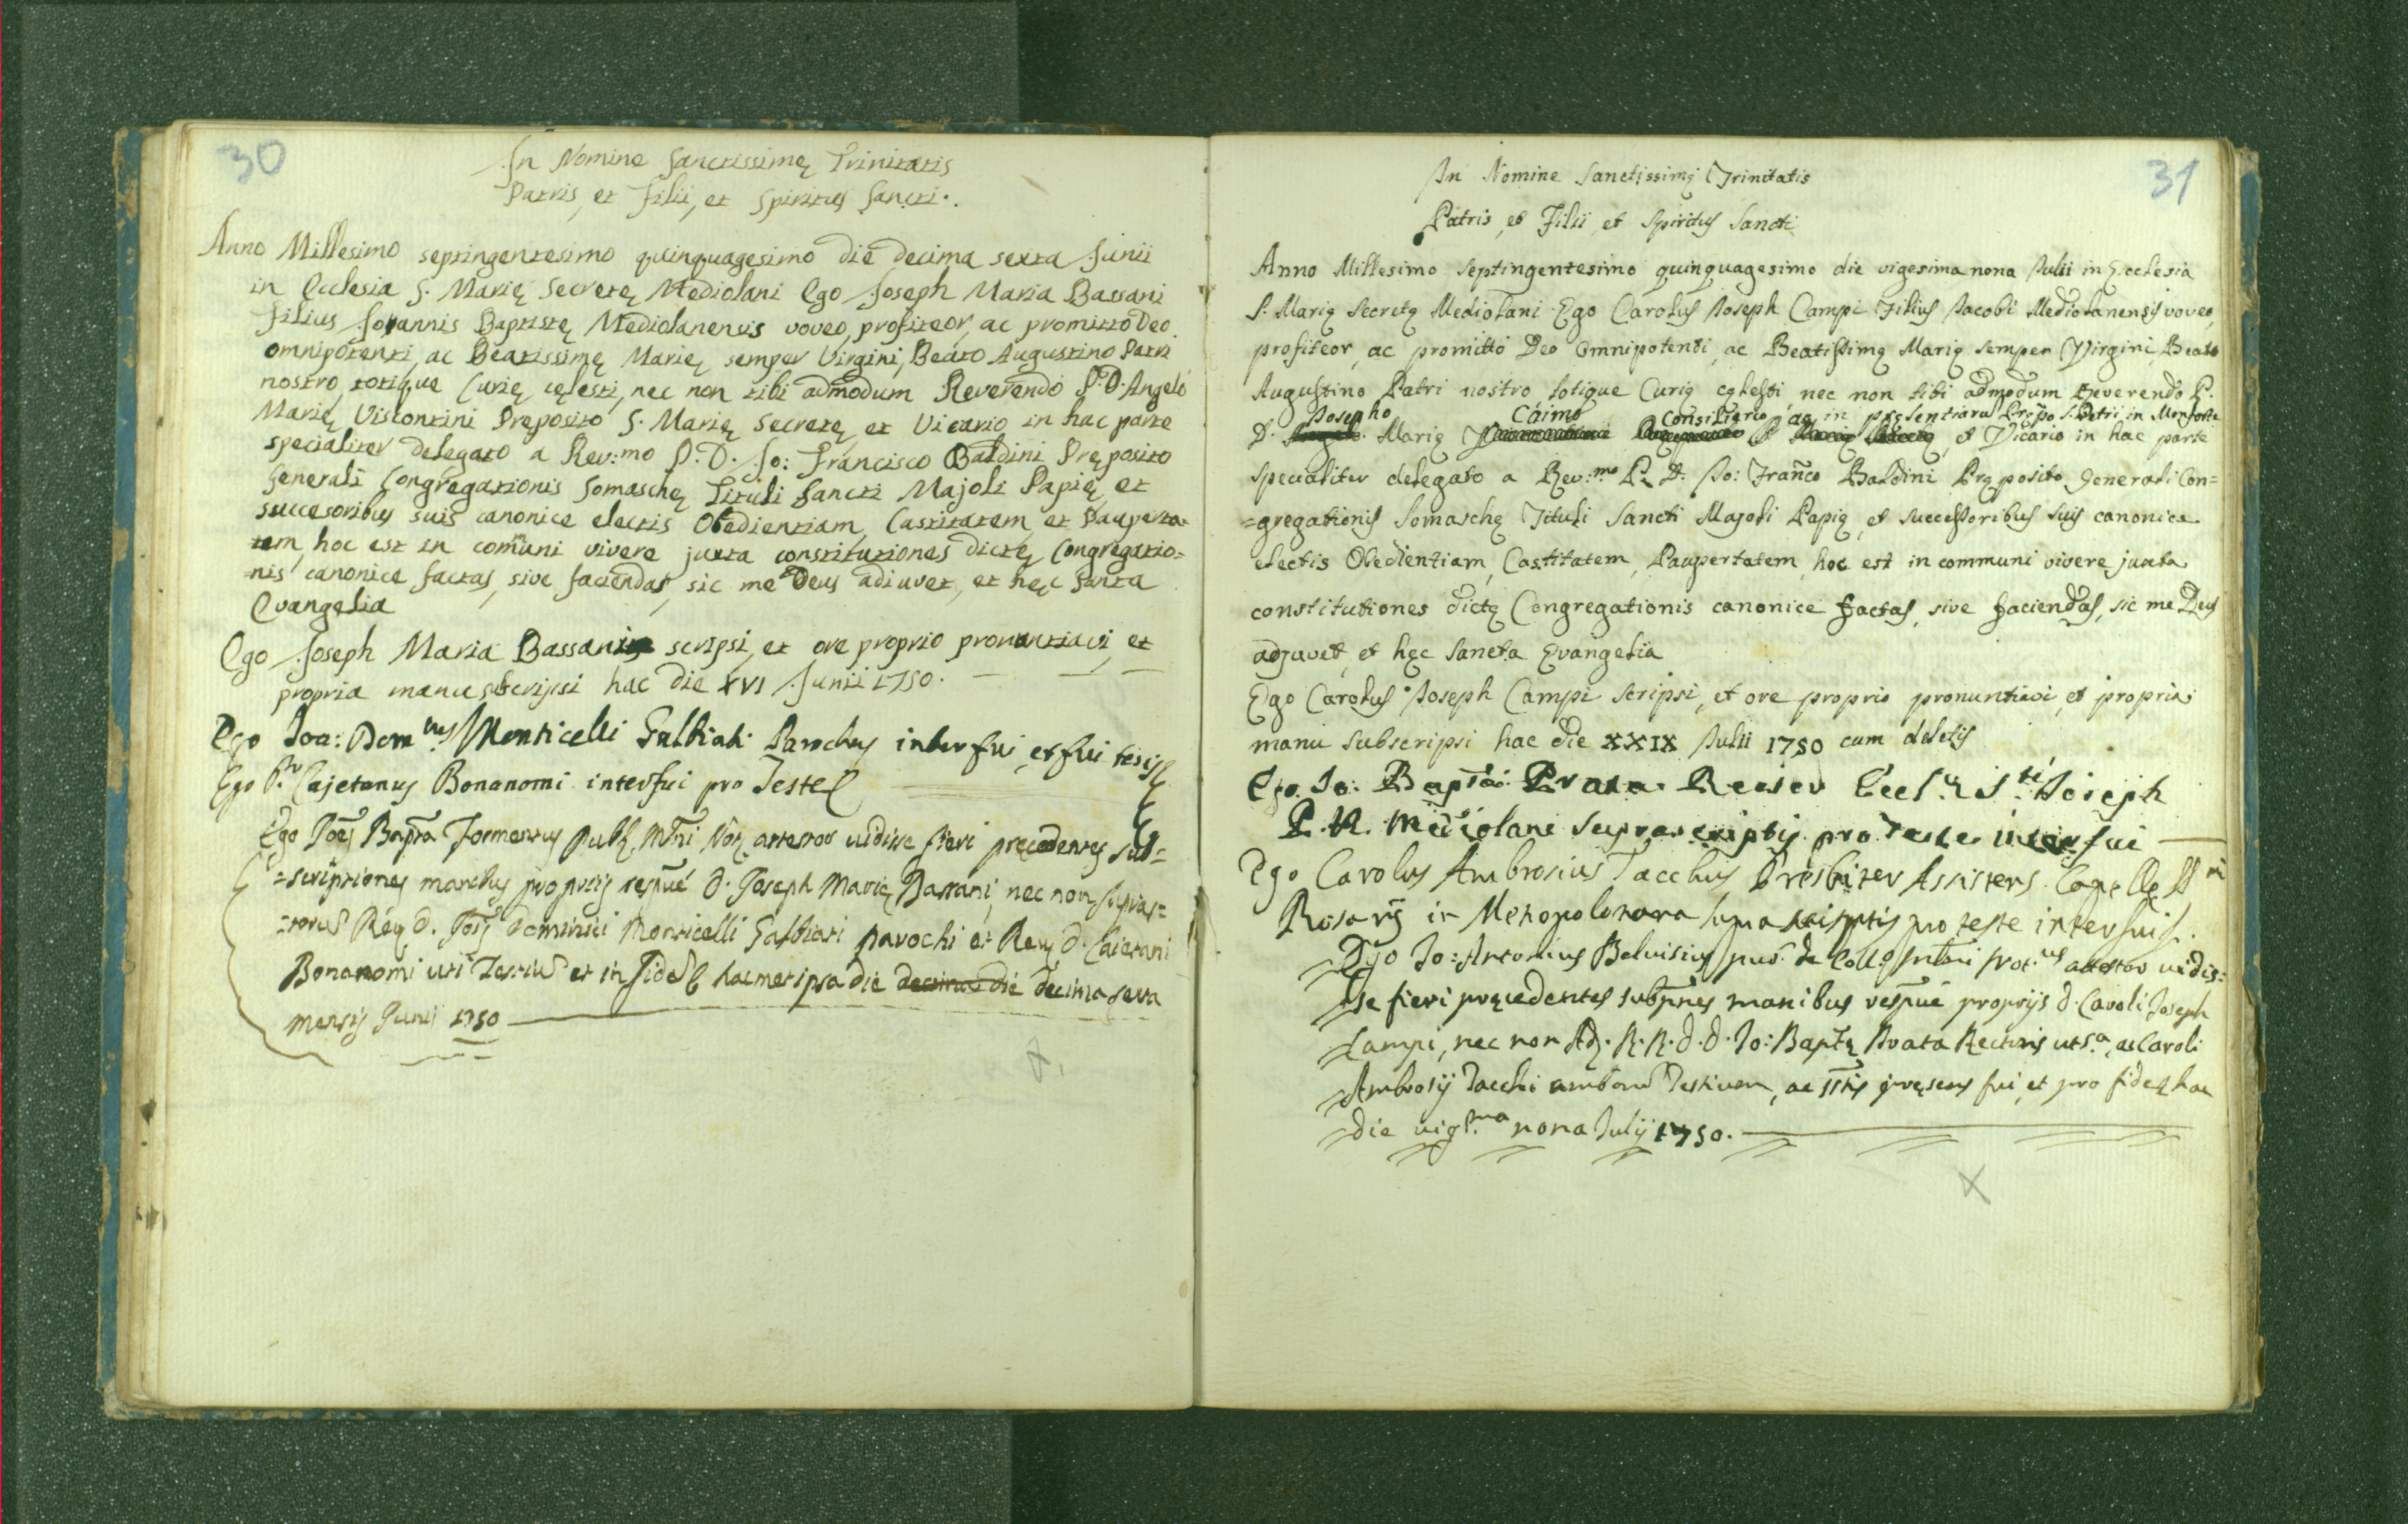 30
In Nomine Sanctissimę Trinitatis
Patris, et Filii, et Spiritus Sancti.
Anno Millesimo septingentesimo quinquagesimo die decima sexta Junii
in Ecclesia S. Marię Secretę Mediolani Ego Joseph Maria Bassani
filius Joannis Baptistę Mediolanensis voveo, profiteor, ac promitto Deo
omnipotenti, ac Beatissimę Marię semper Virgini, Beato Augustino Patri
nostro, totique Curię cęlesti, nec non tibi admodum Reverendo P. D. Angelo
Marię Viscontini Pręposito S. Marię Secretę, et Vicario in hac parte
specialiter delegato a Rev:mo P. D. Jo: Francisco Baldini Pręposito
Generali Congregationis Somaschę Tituli Sancti Majoli Papię, et
succesoribus suis canonice electis Obedientiam, Castitatem, et Pauperta=
tem, hoc est in comuni vivere juxta constitutiones dictę Congregatio=
nis canonice factas, sive faciendas, sic me Deus adiuvet, et hęc Santa
Evangelia
Ego Joseph Maria Bassani scripsi, et ore proprio pronuntiavi, et
propria manu subscripsi hac die XVI Junii 1750.
Ego Joa: Dom.nus Monticelli Galbiati Parochus interfui, et fui testis
Ego P.r Cajetanus Bonanomi interfui pro Teste
Ego Joẽs Bapt̃a Formentus Pub. Mñi Not. attestor vidisse fieri precedentes sub=
=scriptiones manibus proprijs respuẽ D. Joseph Marię Bassani, nec non supras=
=torum Reu. D. Jois Dominici Monticelli Galbiati parochi et Reu. D. Caietani
Bonanomi uti Testium et in fidem hacmet ipsa die decima die decima sexta
mensis Junij 1750
31
In Nomine Sanctissimę Trinitatis
Patris, et Filii, et Spiritus Sancti
Anno Millesimo Septingentesimo quinquagesimo die vigesima nona Julii in Ecclesia
S. Marię Secretę Mediolani Ego Carolus Joseph Campi Filius Jacobi Mediolanensis voveo,
profiteor, ac promitto Deo Omnipotenti, ac Beatissimę Marię semper Virgini, Beato
Augustino Patri nostro totique Curię cęlesti nec non tibi admodum Reverendo P.
Josepho Caimo Consiliario ac in pręsentiarum Pręp.o S. Petri in Monforte
D. Angelo Marię et Vicario in hac parte
specialiter delegato a Rev:mo P. D. Jo: Fran̄co Baldini Pręposito Generali Con=
=gregationis Somaschę Tituli Sancti Majoli Papię, et successoribus suis canonice
electis Obedientiam, Castitatem, Paupertatem, hoc est in communi vivere juxta
constitutiones dictę Congregationis canonice factas, sive faciendas, sic me Deus
adjuvet, et hęc Sancta Evangelia
Ego Carolus Joseph Campi scripsi, et ore proprio pronuntiavi, et propria
manu subscripsi hac die XXIX Julii 1750 cum deletis
Ego Jo: Bapta Prata Rector Eccl. S.ti Joseph
P. N. Mediolani suprascriptis pro teste interfui
Ego Carolus Ambrosius Tacchus Presbiter Assistens Capellę SS.mi
Rosarij in Metropolitana suprascriptis pro teste interfui.
Ego Jo: Antonius Belvisius pub. de Coll. Mediolani Not.us attestor vidis=
se fieri pręcedentes subpñes manibus respuẽ proprijs D. Caroli Joseph
Campi, nec non Ad. R. R. D. D. Jo: Baptę Prata Rectoris ut s.a, ac Caroli
Ambrosij Tacchi amborum Testium, ac sstis pręsens fui, et pro fide hac
die vig.ma nona Julij 1750.